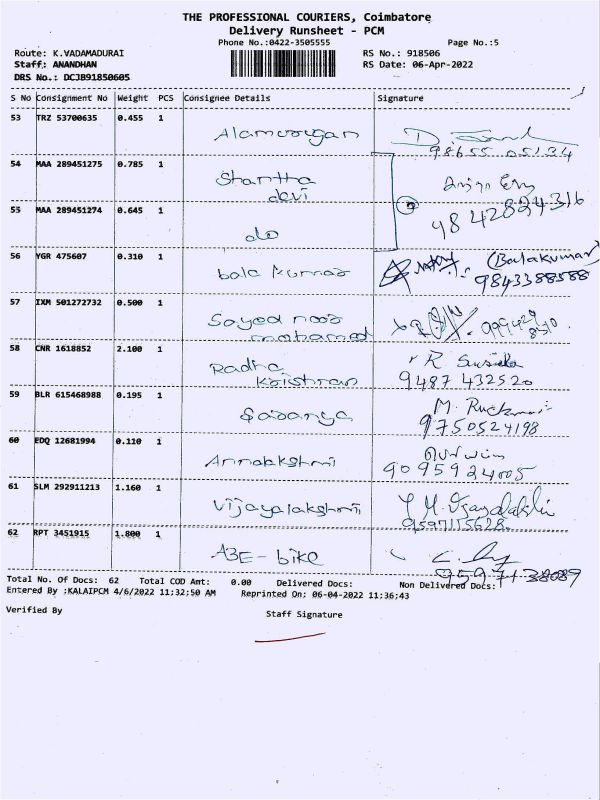 THE PROFESSIONAL COURIERS, Coimbatore
Delivery Runsheet - PCM
Phone No.:0422-3505555 Page No.:5
Route: K.VADAMADURAI RS No.: 918506
Staff: ANANDHAN RS Date: 06-Apr-2022
DRS No.: DCJB91850605
S No Consignment No Weight PCS Consignee Details Signature
53 TRZ 53700635 0.455 1 Alamurugan
98655 05134
54 MAA 289451275 0.785 1 Shantha
devi
55 MAA 289451274 0.645 1 do 9842824316
56 YGR 475607 0.310 1 bala kumar (Balakumar)
9843388588
57 IXM 501272732 0.500 1 Sayed noor
mohamed
58 CNR 1618852 2.100 1 Radha R Susila
Krishnan 9487 432520
59 BLR 615468988 0.195 1 Saranya M. Rukmani
9750524198
60 EDQ 12681994 0.110 1 Annalakshmi
9095924005
61 SLM 292911213 1.160 1 Vijayalakshmi
9597115628
62 RPT 3451915 1.800 1 A3E-bike
95971 38089
Total No. Of Docs: 62 Total COD Amt: 0.00 Delivered Docs: Non Delivered Docs:
Entered By :KALAIPCM 4/6/2022 11:32:50 AM Reprinted On: 06-04-2022 11:36:43
Verified By Staff Signature